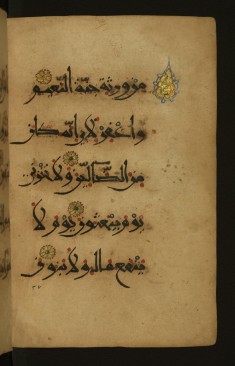 من ورثة جنة النعيم
واغفر لابي انه كان
من الضالين ولا تخزني
يوم يبعثون يوم لا
ينفع مال ولا بنون